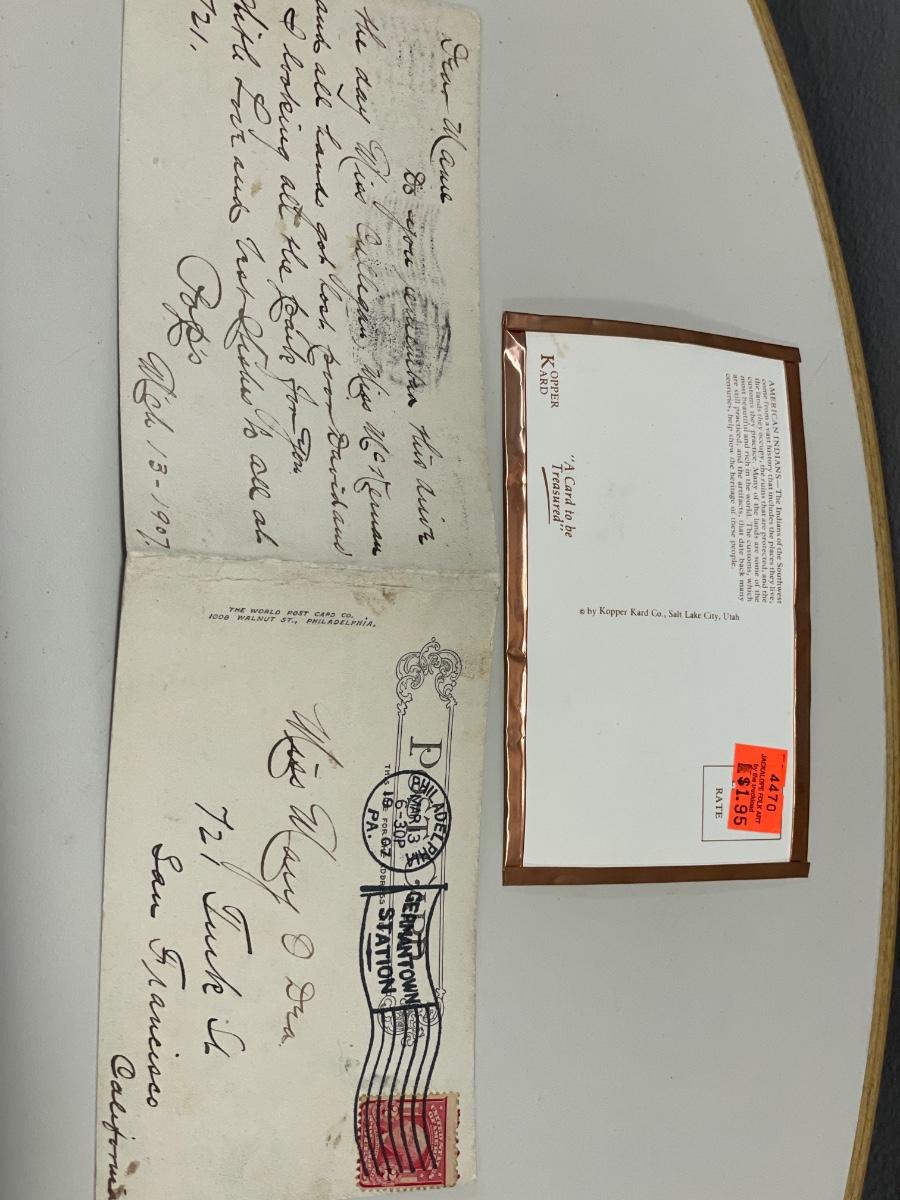 Dear Mame
Do you remember this dive
the day Miss Culligan, Miss McKernan
and all hands got lost, poor David and
I looking all the Park for you.
With Love and Best Wishes to all at
721.
Pop's
Mch 13-1907.
THE WORLD POST CARD CO.
1008 WALNUT ST., PHILADELPHIA.
PHILADELPHIA
MAR 13
6-30P
07
PA.
GERMANTOWN
STATION
Miss Mary O Dea
721 Turk St
San Francisco
California
AMERICAN INDIANS—The Indians of the Southwest
come from a vast history that includes the places they live,
the lands they occupy, the ruins that are protected, and the
customs they practice. Many of the lands are some of the
most beautiful and rich in the world. The customs, which
are still practiced, and the artifacts, that date back many
centuries, help show the heritage of these people.
KOPPER
KARD
"A Card to be
Treasured"
© by Kopper Kard Co., Salt Lake City, Utah
4470
JACKALOPE FOLK ART
by the truckload
$1.95
RATE